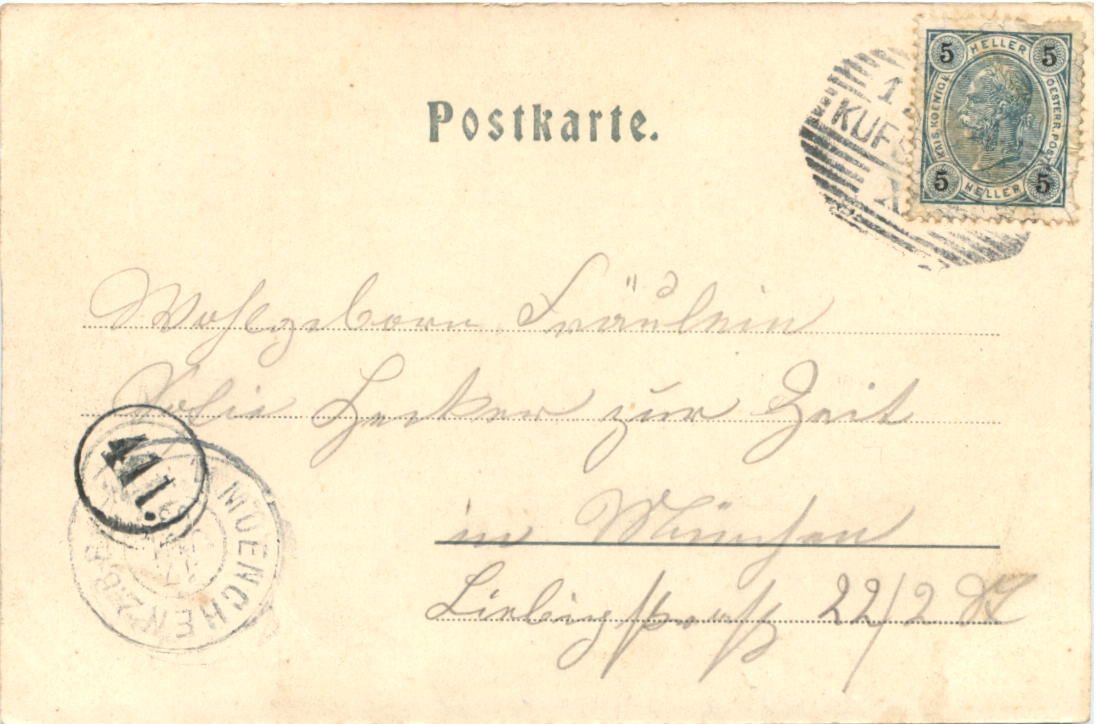 Postkarte.
5 HELLER 5
KAIS. KOENIGL. OESTERR. POST
5 HELLER 5
KUF
Wohlgeborn Fräulein
Hecker zur Zeit
in München
Liebigstraß 22/2
411.
MUENCHEN 2. B.